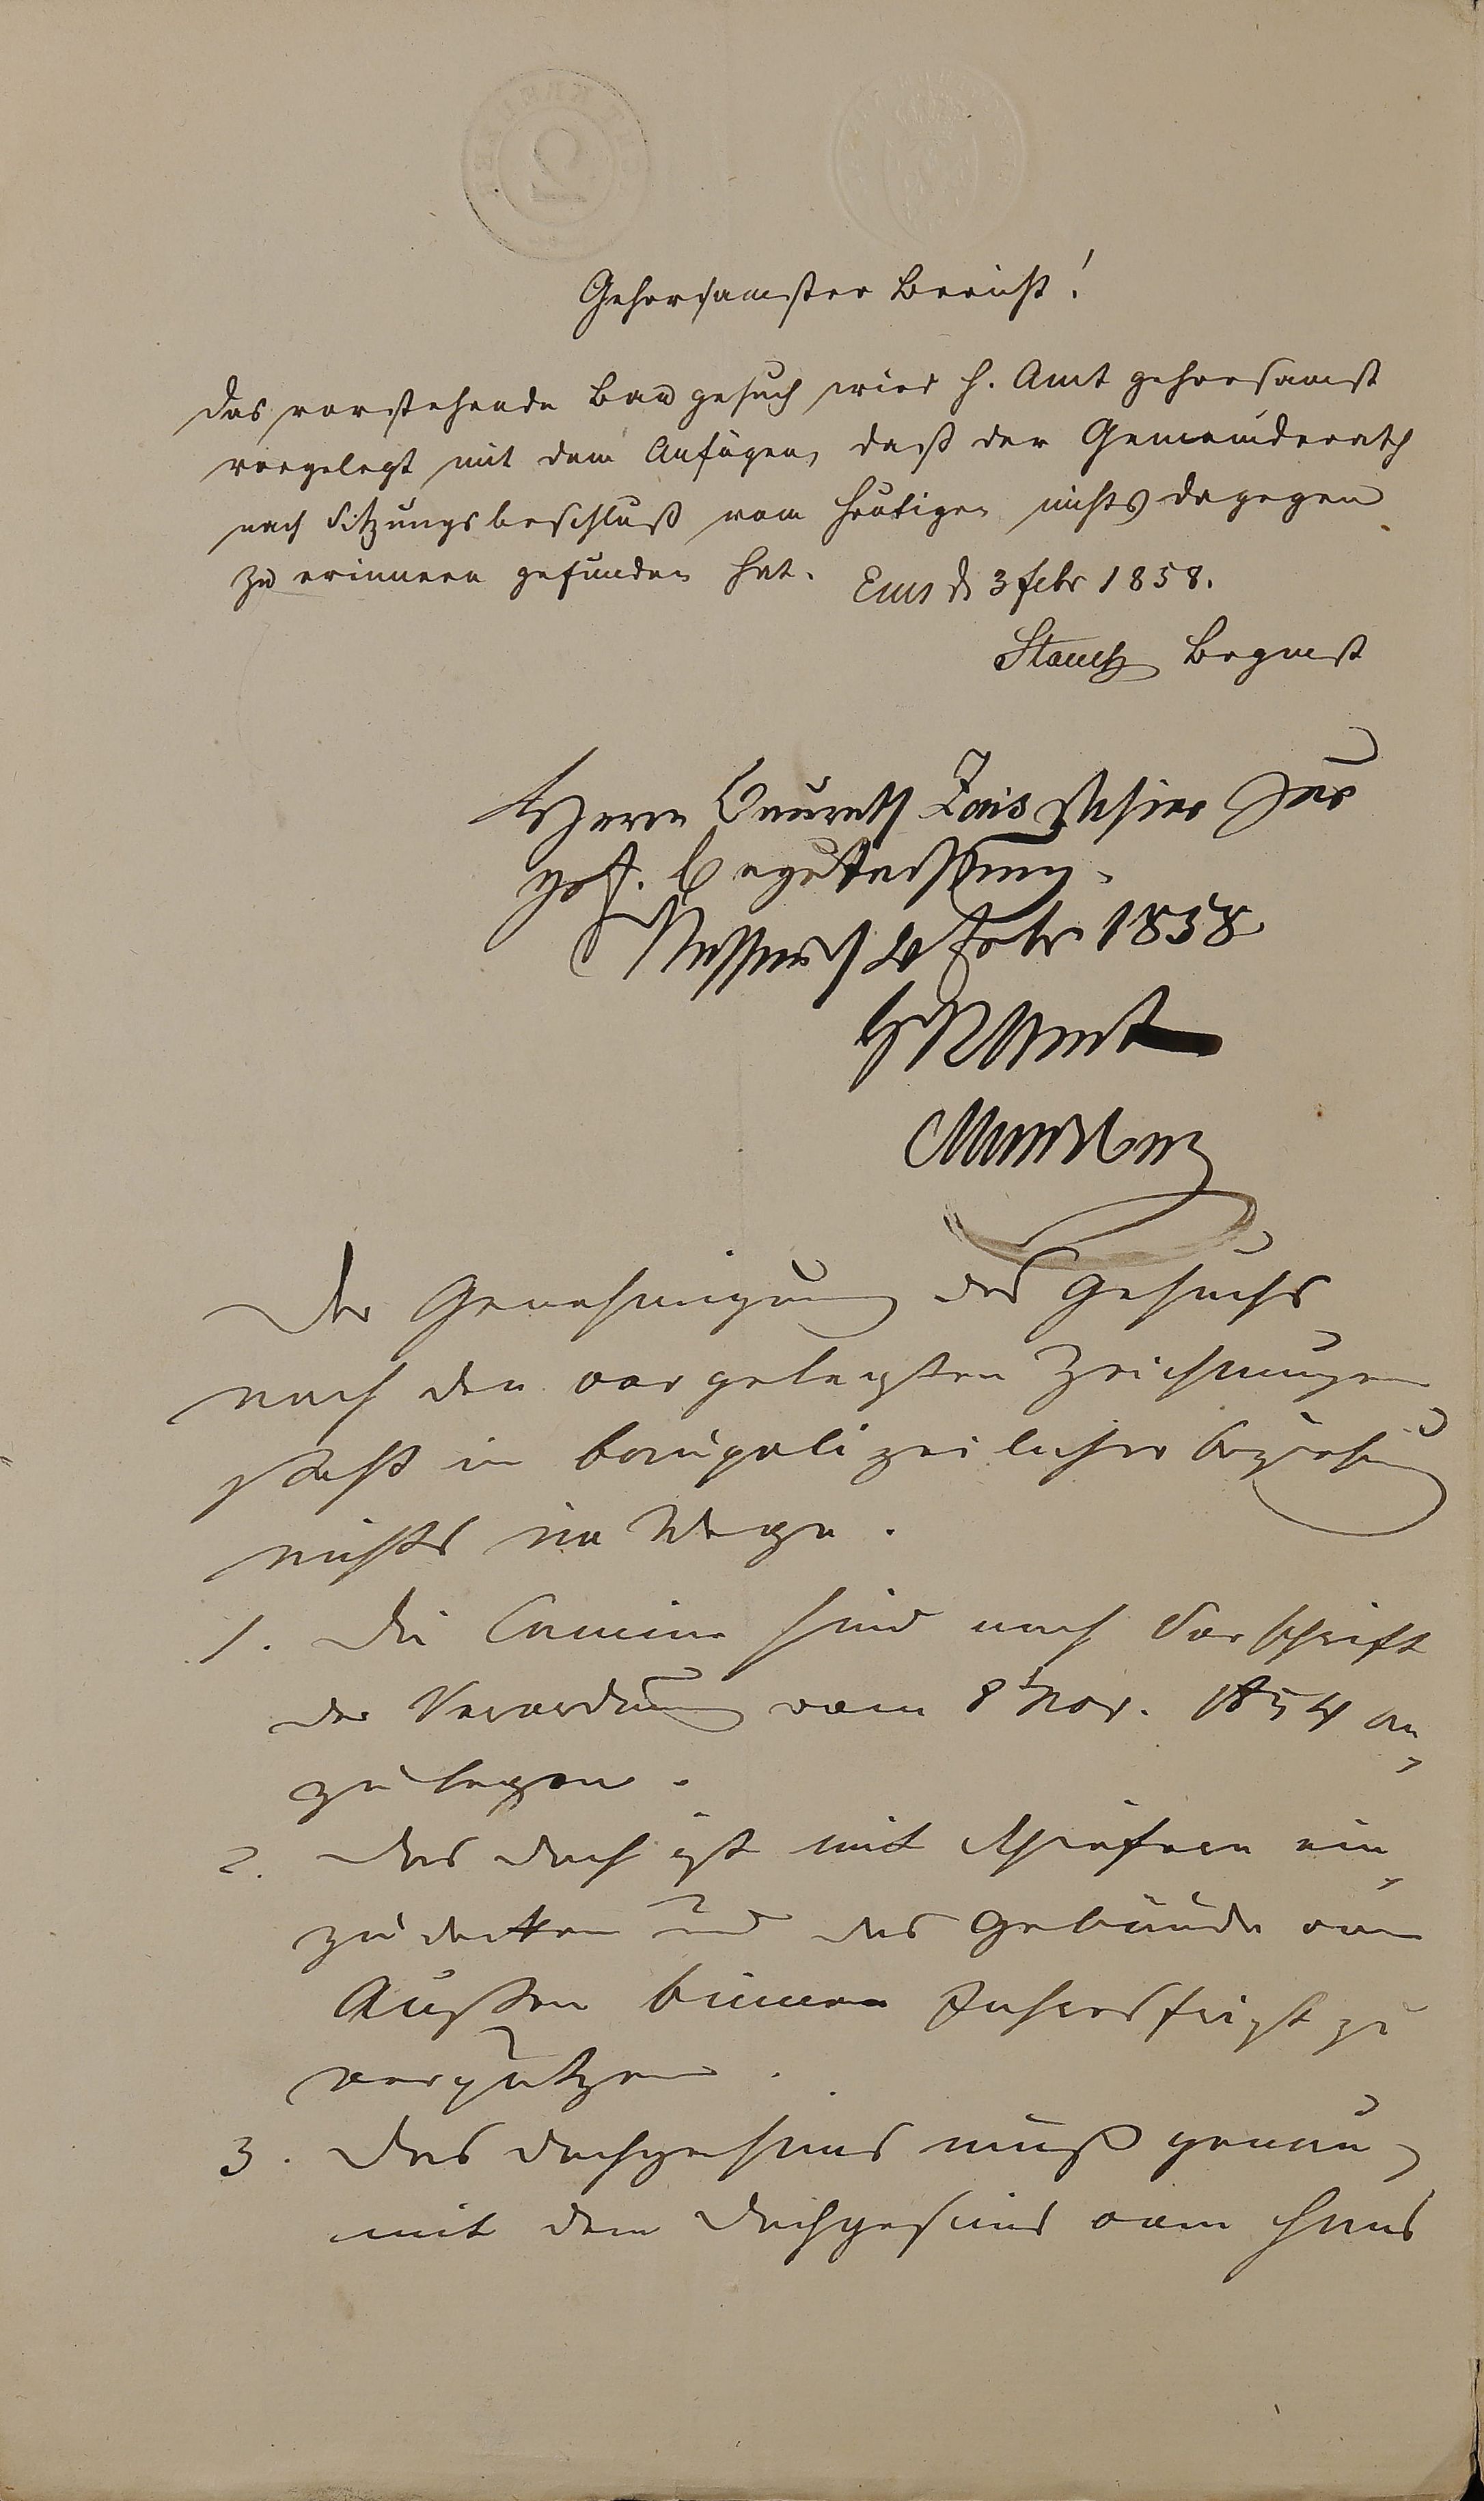 2
Gehorsamster Bericht!
Das vorstehende Baugesuch wird H. Amt gehorsamst
vorgelegt mit dem Anfügen, daß der Gemeinderath
nach Sitzungsbeschluß vom Heutigen nichts dagegen
zu erinnern gefunden hat. Ems d 3 Febr 1858.
Bgmst
Herrn Baurath Zais dahier zur
gef. Begutachtung.
Nassau 4 Febr 1858
H N Amt
Der Genehmigung des Gesuchs
nach den vorgelegten Zeichnungen
steht in baupolizeilicher Beziehung
nichts im Wege.
1. Die Camine sind nach Vorschrift
der Verordnung vom 8t Nov. 1854 an
zu legen.
2. Das Dach ist mit Schiefern ein
zudecken und das Gebäude von
Außen binnen Jahresfrist zu
verputzen.
3. Das Dachgesims muß genau
mit dem Dachgesims vom Haus